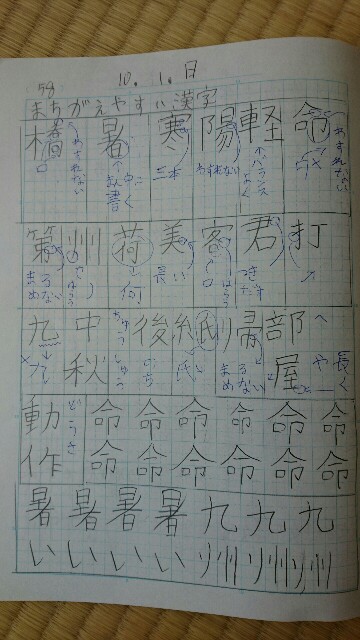 58 10.1.日
まちがえやすい漢字
命 わすれない
軽 バランスよく
陽 わすれない
寒 三本
暑
橋 わすれない
打
君 つきだす
客 はらう
美 長い
荷 何
州
第 まるめない
部屋 へや 長く
帰 まるめない
紙 氏
後 のち
中秋 ちゅうしゅう
九
動作 どうさ
命 命 命 命 命 命
命 命 命 命 命 命
暑 暑 暑 暑 九 九 九
い い い い 州 州 州